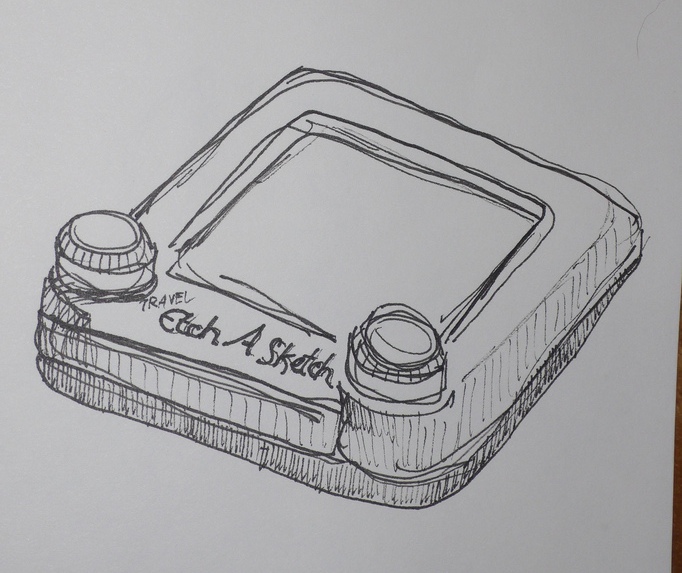 TRAVEL
Etch A Sketch